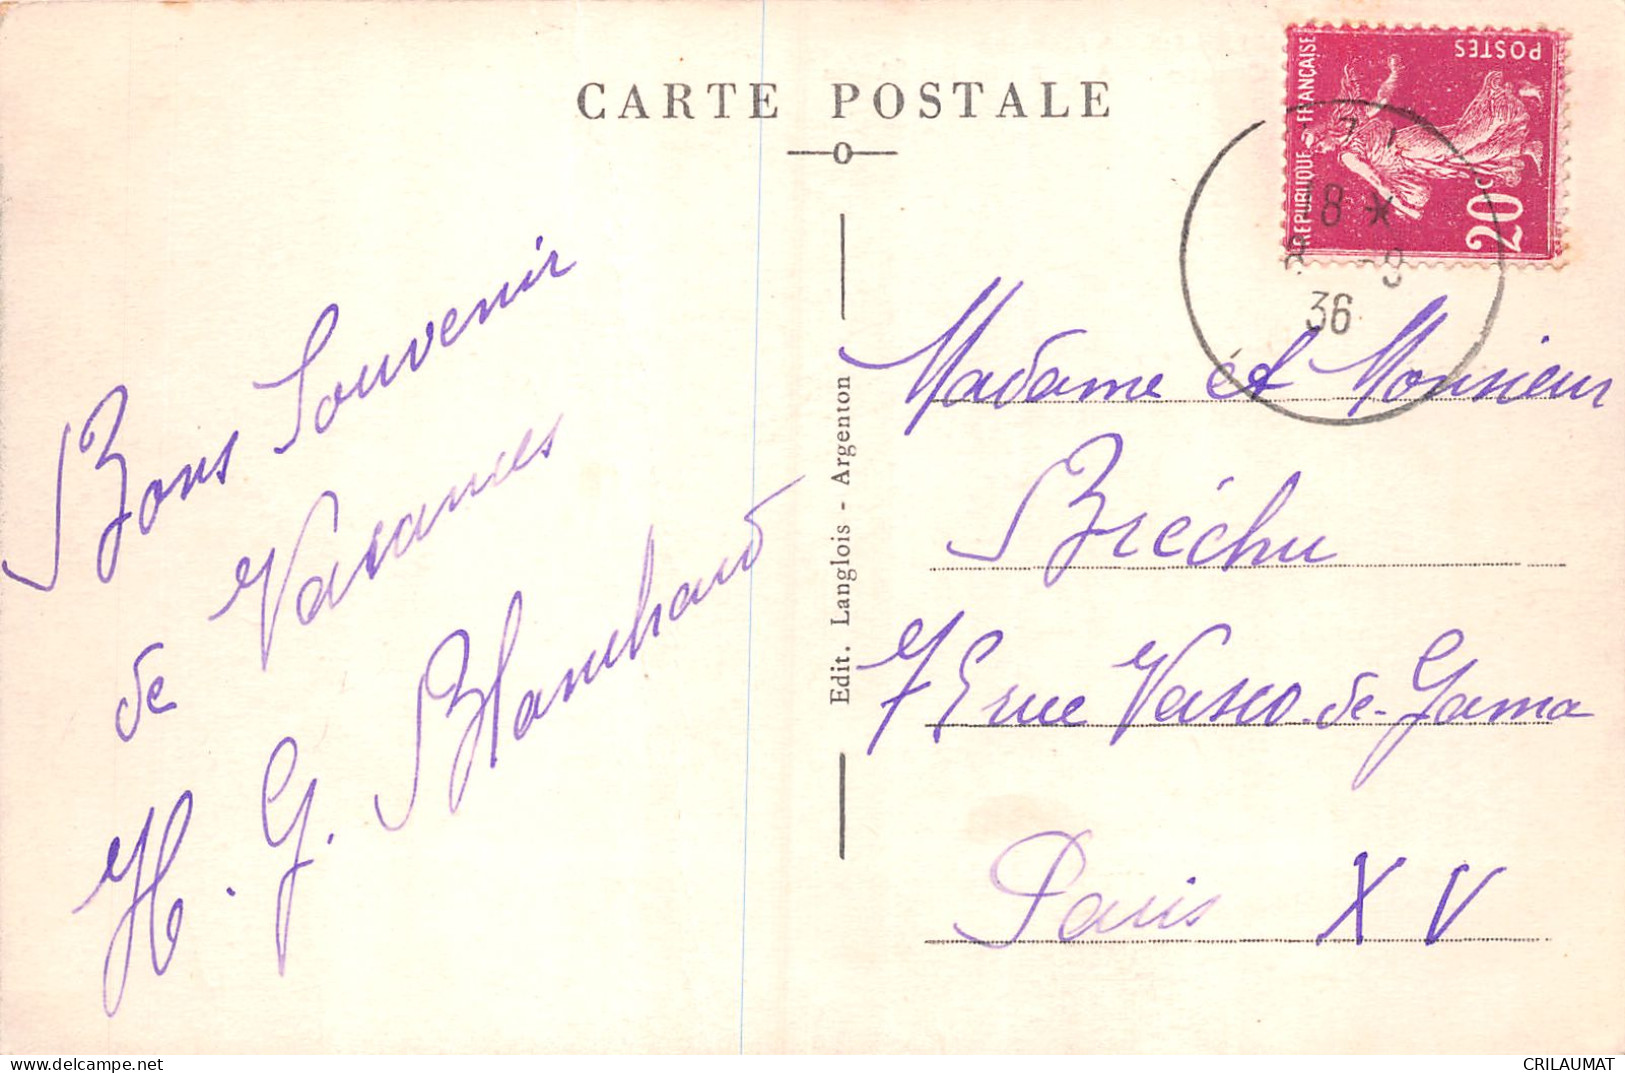 CARTE POSTALE
REPUBLIQUE FRANÇAISE
POSTES
20c
18 *
-9
36
Bons Souvenir
de Vacances
H. G. Blanchard
Edit. Langlois - Argenton
Madame et Monsieur
Bréchu
rue Vasco-de-Gama
Paris XV
www.delcampe.net
CRILAUMAT